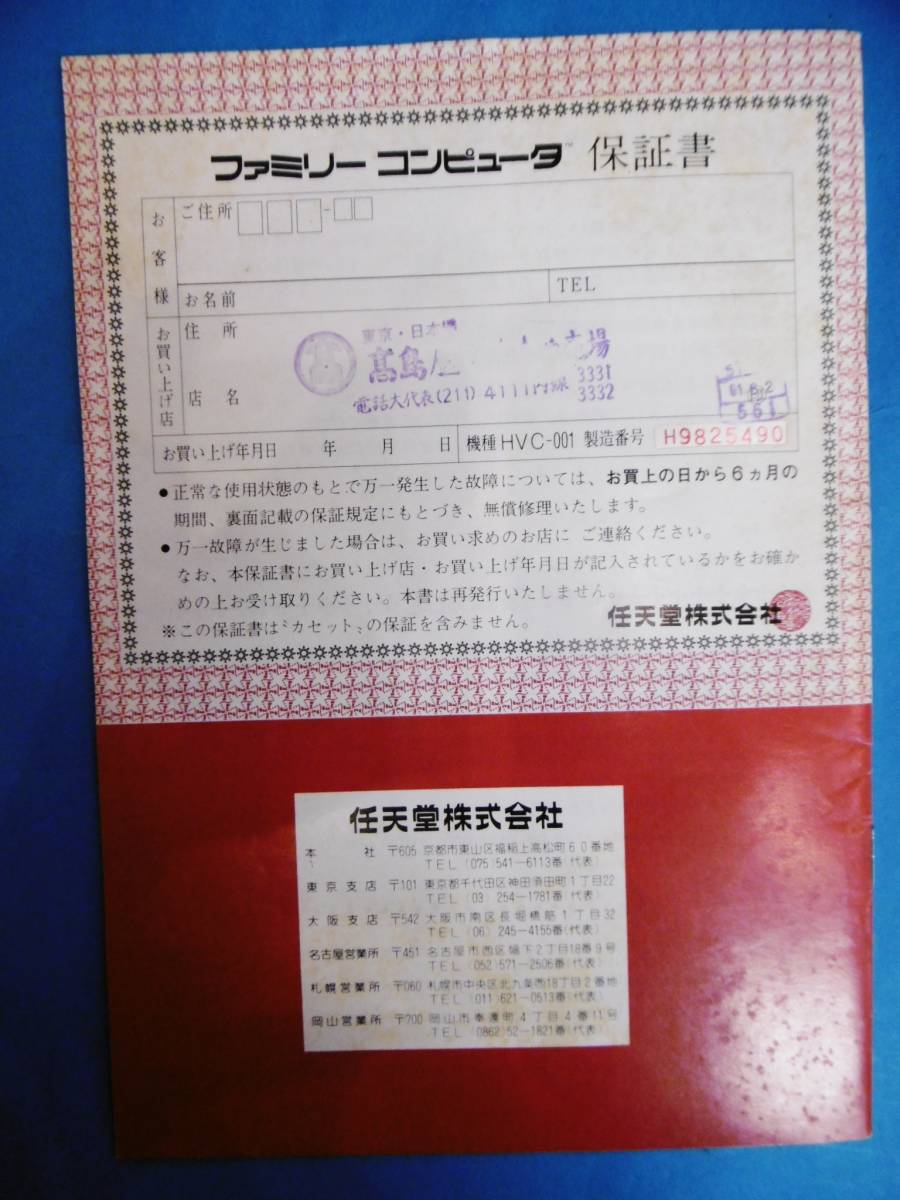 ファミリー コンピュータ™ 保証書
お客様
ご住所
お名前
TEL
お買い上げ店
住所
東京・日本
髙島
電話大代表(211)4111内線 3331
3332
店名
61.8.2
561
お買い上げ年月日 年 月 日 機種 HVC-001 製造番号 H9825490
●正常な使用状態のもとで万一発生した故障については、お買上の日から6ヵ月の
期間、裏面記載の保証規定にもとづき、無償修理いたします。
●万一故障が生じました場合は、お買い求めのお店に ご連絡ください。
なお、本保証書にお買い上げ店・お買い上げ年月日が記入されているかをお確か
めの上お受け取りください。本書は再発行いたしません。
※この保証書は〝カセット〟の保証を含みません。
任天堂株式会社
任天堂株式会社
本社 〒605 京都市東山区福稲上高松町60番地
TEL (075)541-6113番(代表)
東京支店 〒101 東京都千代田区神田須田町1丁目22
TEL (03) 254-1781番(代表)
大阪支店 〒542 大阪市南区長堀橋筋1丁目32
TEL (06) 245-4155番(代表)
名古屋営業所 〒451 名古屋市西区幅下2丁目18番9号
TEL (052)571-2506番(代表)
札幌営業所 〒060 札幌市中央区北九条西18丁目2番地
TEL (011)621-0513番(代表)
岡山営業所 〒700 岡山市奉還町4丁目4番11号
TEL (0862)52-1821番(代表)